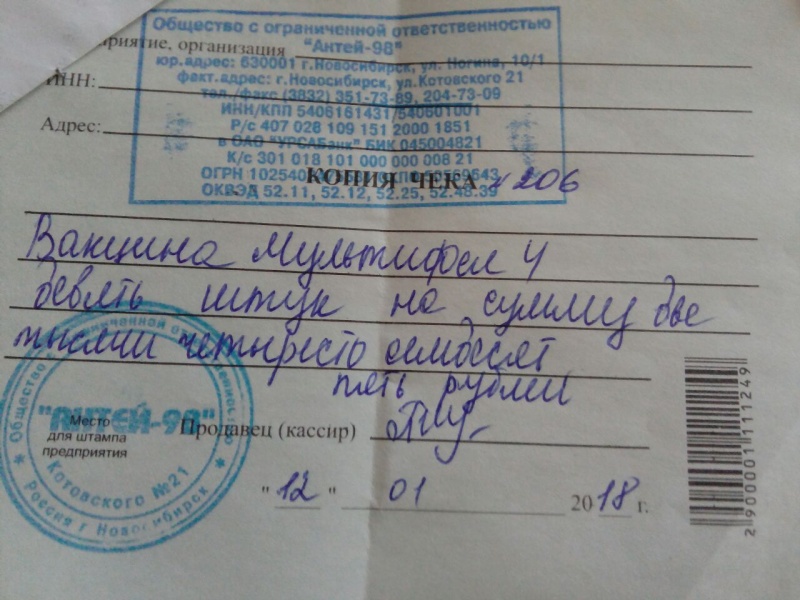 Общество с ограниченной ответственностью
"Антей-98"
приятие, организация
юр.адрес: 630001 г.Новосибирск, ул. Ногина, 10/1
факт.адрес: г.Новосибирск, ул.Котовского 21
ИНН:
тел./факс (3832) 351-73-89, 204-73-09
ИНН/КПП 5406161431/540601001
Адрес:
Р/с 407 028 109 151 2000 1851
в ОАО "УРСАБанк" БИК 045004821
К/с 301 018 101 000 000 008 21
ОГРН 102540
КОПИЯ ЧЕКА № 206
ОКВЭД 52.11, 52.12, 52.25, 52.48.39
Вакцина Мультифел 4
девять штук на сумму две
тысячи четыресто семдесят
пять рублей
Общество с ограниченной ответственностью
"АНТЕЙ-98"
Котовского №21
Россия г Новосибирск
Место
для штампа
предприятия
Продавец (кассир)
"12" 01 2018 г.
2 900001 111249